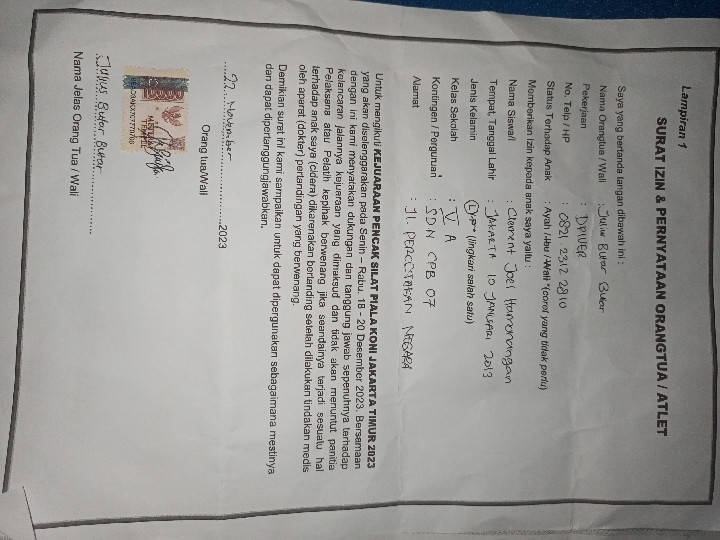 Lampiran 1
SURAT IZIN & PERNYATAAN ORANGTUA / ATLET
Saya yang bertanda tangan dibawah ini :
Nama Orangtua / Wali : Julius Butar Butar
Pekerjaan : DRIVER
No. Telp / HP : 0821 2312 2810
Status Terhadap Anak : Ayah / Ibu / Wali *(coret yang tidak perlu)
Memberikan Izin kepada anak saya yaitu :
Nama Siswa/i : Clement Joel Hamonangan
Tempat, Tanggal Lahir : JAKARTA 10 JANUARI 2013
Jenis Kelamin : L / P * (lingkari salah satu)
Kelas Sekolah : V A
Kontingen / Perguruan : SDN CPB 07
Alamat : Jl. PERCETAKAN NEGARA
Untuk mengikuti KEJUARAAN PENCAK SILAT PIALA KONI JAKARTA TIMUR 2023
yang akan diselenggarakan pada Senin – Rabu, 18 - 20 Desember 2023. Bersamaan
dengan ini kami menyatakan dukungan dan tanggung jawab sepenuhnya terhadap
kelancaran jalannya kejuaraan yang dimaksud dan tidak akan menuntut panitia
Pelaksana atau Pelatih kepihak berwenang jika seandainya terjadi sesuatu hal
terhadap anak saya (cidera) dikarenakan bertanding setelah dilakukan tindakan medis
oleh aparat (dokter) pertandingan yang berwenang.
Demikian surat ini kami sampaikan untuk dapat dipergunakan sebagaimana mestinya
dan dapat dipertanggungjawabkan.
....22 November..............2023
Orang tua/Wali
METERAI
TEMPEL
Julius Butar Butar
Nama Jelas Orang Tua / Wali